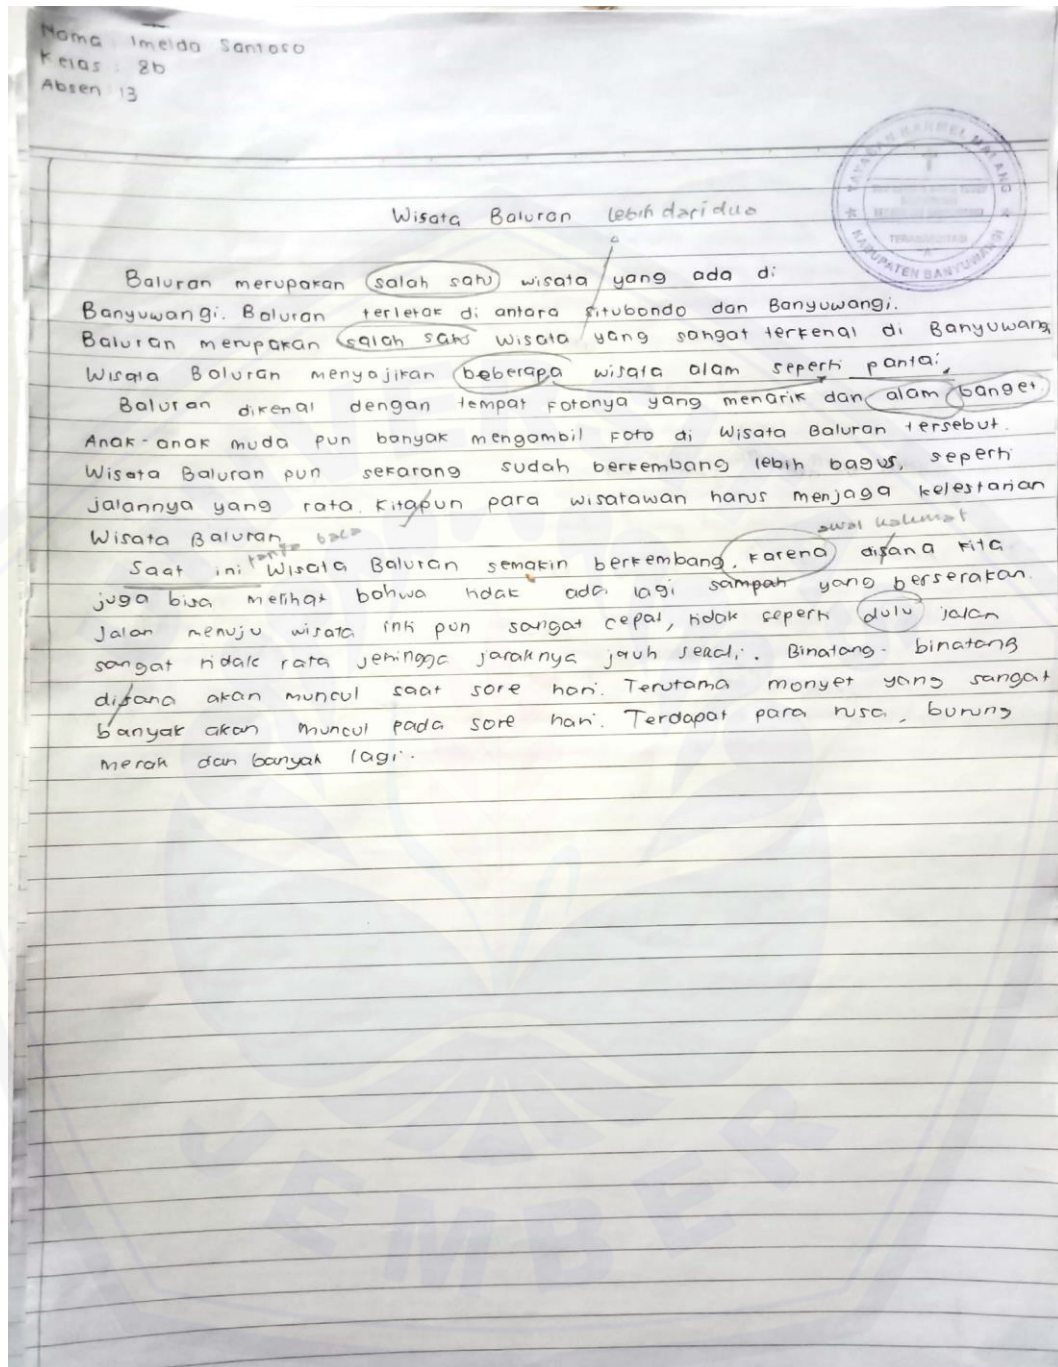 Nama : Imelda Santoso
Kelas : 8b
Absen 13
YAYASAN KARMEL MALANG
TERAKREDITASI
"A"
KABUPATEN BANYUWANGI
Wisata Baluran lebih dari dua
Baluran merupakan salah satu wisata yang ada di
Banyuwangi. Baluran terletak di antara Situbondo dan Banyuwangi.
Baluran merupakan salah satu wisata yang sangat terkenal di Banyuwangi
Wisata Baluran menyajikan beberapa wisata alam seperti pantai,
Baluran dikenal dengan tempat fotonya yang menarik dan alam banget.
Anak-anak muda pun banyak mengambil foto di Wisata Baluran tersebut.
Wisata Baluran pun sekarang sudah berkembang lebih bagus, seperti
jalannya yang rata. Kitapun para wisatawan harus menjaga kelestarian
Wisata Baluran
tanya baca
awal kalimat
Saat ini Wisata Baluran semakin berkembang. Karena disana kita
juga bisa melihat bahwa tidak ada lagi sampah yang berserakan.
Jalan menuju wisata ini pun sangat cepat, tidak seperti dulu jalan
sangat tidak rata sehingga jaraknya jauh sekali. Binatang-binatang
disana akan muncul saat sore hari. Terutama monyet yang sangat
banyak akan muncul pada sore hari. Terdapat para rusa, burung
merak dan banyak lagi.
JEMBER